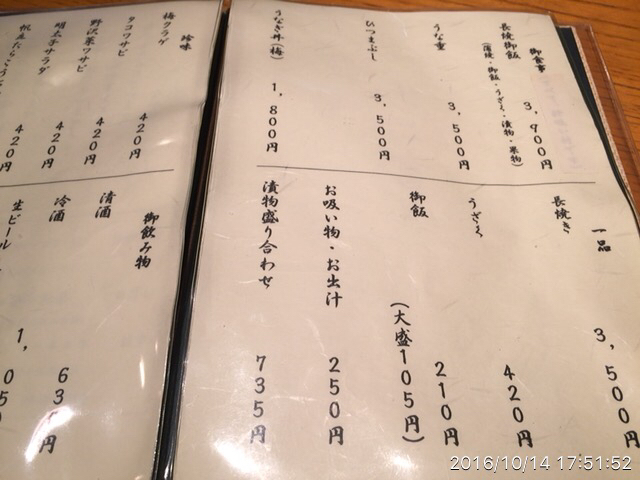 御食事
長焼御飯 3,900円
(蒲焼・御飯・うざく・漬物・果物)
うな重 3,500円
ひつまぶし 3,500円
うなぎ丼(梅) 1,800円
一品
長焼き 3,500円
うざく 420円
御飯 210円
(大盛105円)
お吸い物・お出汁 250円
漬物盛り合わせ 735円
珍味
梅クラゲ 420円
タコワサビ 420円
野沢菜ワサビ 420円
明太子サラダ 420円
御飲み物
清酒
冷酒 63 円
生ビール 1,05
2016/10/14 17:51:52